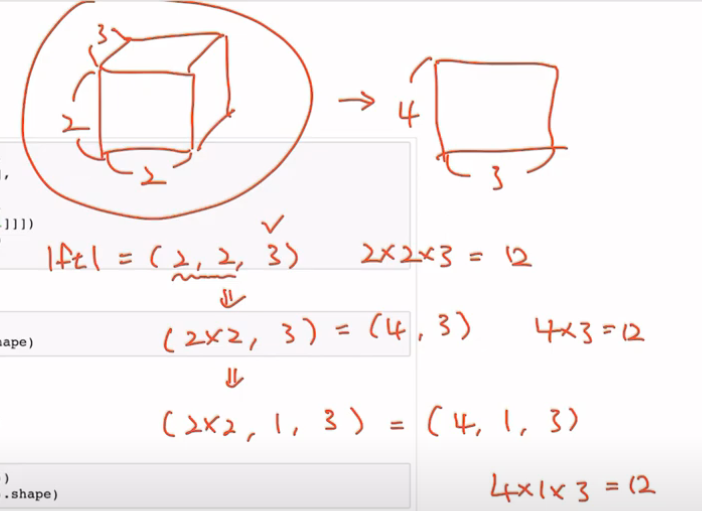 3
2
2
→ 4
3
,
.]]])
|ft| = (2, 2, 3) ✓ 2×2×3 = 12
⇓
ape)
(2×2, 3) = (4, 3) 4×3=12
⇓
(2×2, 1, 3) = (4, 1, 3)
)
.shape)
4×1×3 = 12